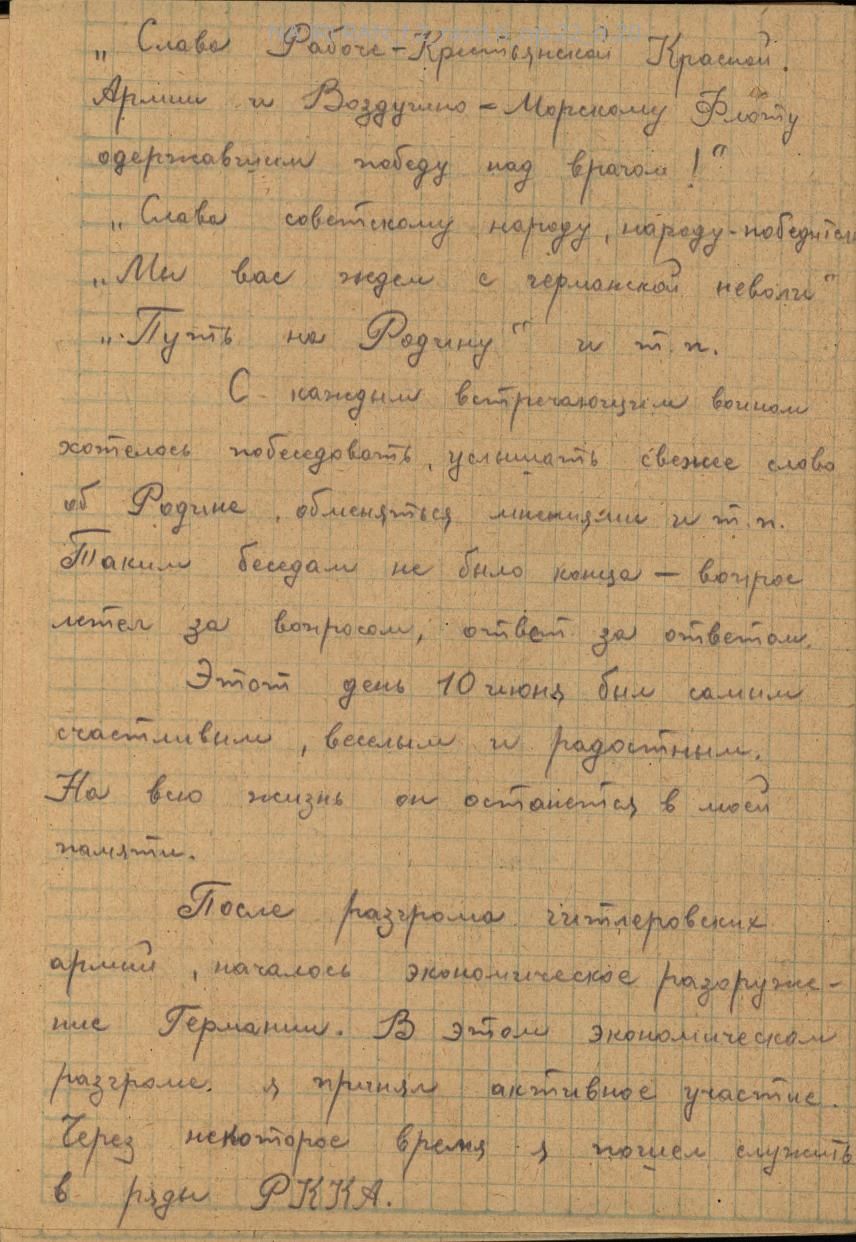 „Слава Рабоче-Крестьянской Красной.
Армии и Воздушно-Морскому Флоту
одержавшим победу над врагом!“
„Слава советскому народу, народу-победителю
„Мы вас ждем с германской неволи“
„Путь на Родину“ и т.п.
С каждым встречающим воином
хотелось побеседовать, услышать свежее слово
об Родине, обменяться мнениями и т.п.
Таким беседам не было конца – вопрос
летел за вопросом, ответ за ответом.
Этот день 10 июня был самым
счастливым, веселым и радостным.
На всю жизнь он останется в моей
памяти.
После разгрома гитлеровских
армий, началось экономическое разоруже-
ние Германии. В этом экономическом
разгроме. я принял активное участие.
Через некоторое время я пошел служить
в ряды РККА.